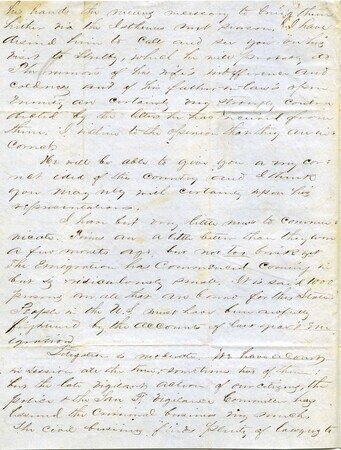 his hands the means necessary to bring them
hither via the Isthmus next season. I have
desired him to call and see you on his
visit to Shelby, which he will probably do
The rumors of his wife's indifference and
coldness and of his father-in-law's open
enmity are certainly very strongly contra
dicted by the letters he has received from
them. I incline to the opinion that they are in
correct
He will be able to give you a very cor
rect idea of this country and I think
you may rely with certainty upon his
representations.
I have but very little news to commu
nicate. Times are a little better than they were
a few months ago, but not too brisk yet
The Emigration has Commenced coming in
but is ridiculously small. It is said 1000
persons are all that are bound for this State
People in the U.S. must have been awfully
frightened by the accounts of last year's em
igration
Litigation is moderate. We have a Court
in session all the time, sometimes two of them;
but the late vigilant action of our citizens, the
police & the San F. Vigilance Committee has
lessened the Criminal business very much.
The civil business finds plenty of lawyers to